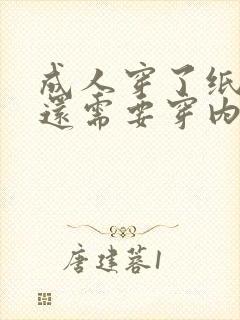 成人穿了纸
還需要穿内
唐建蓉1